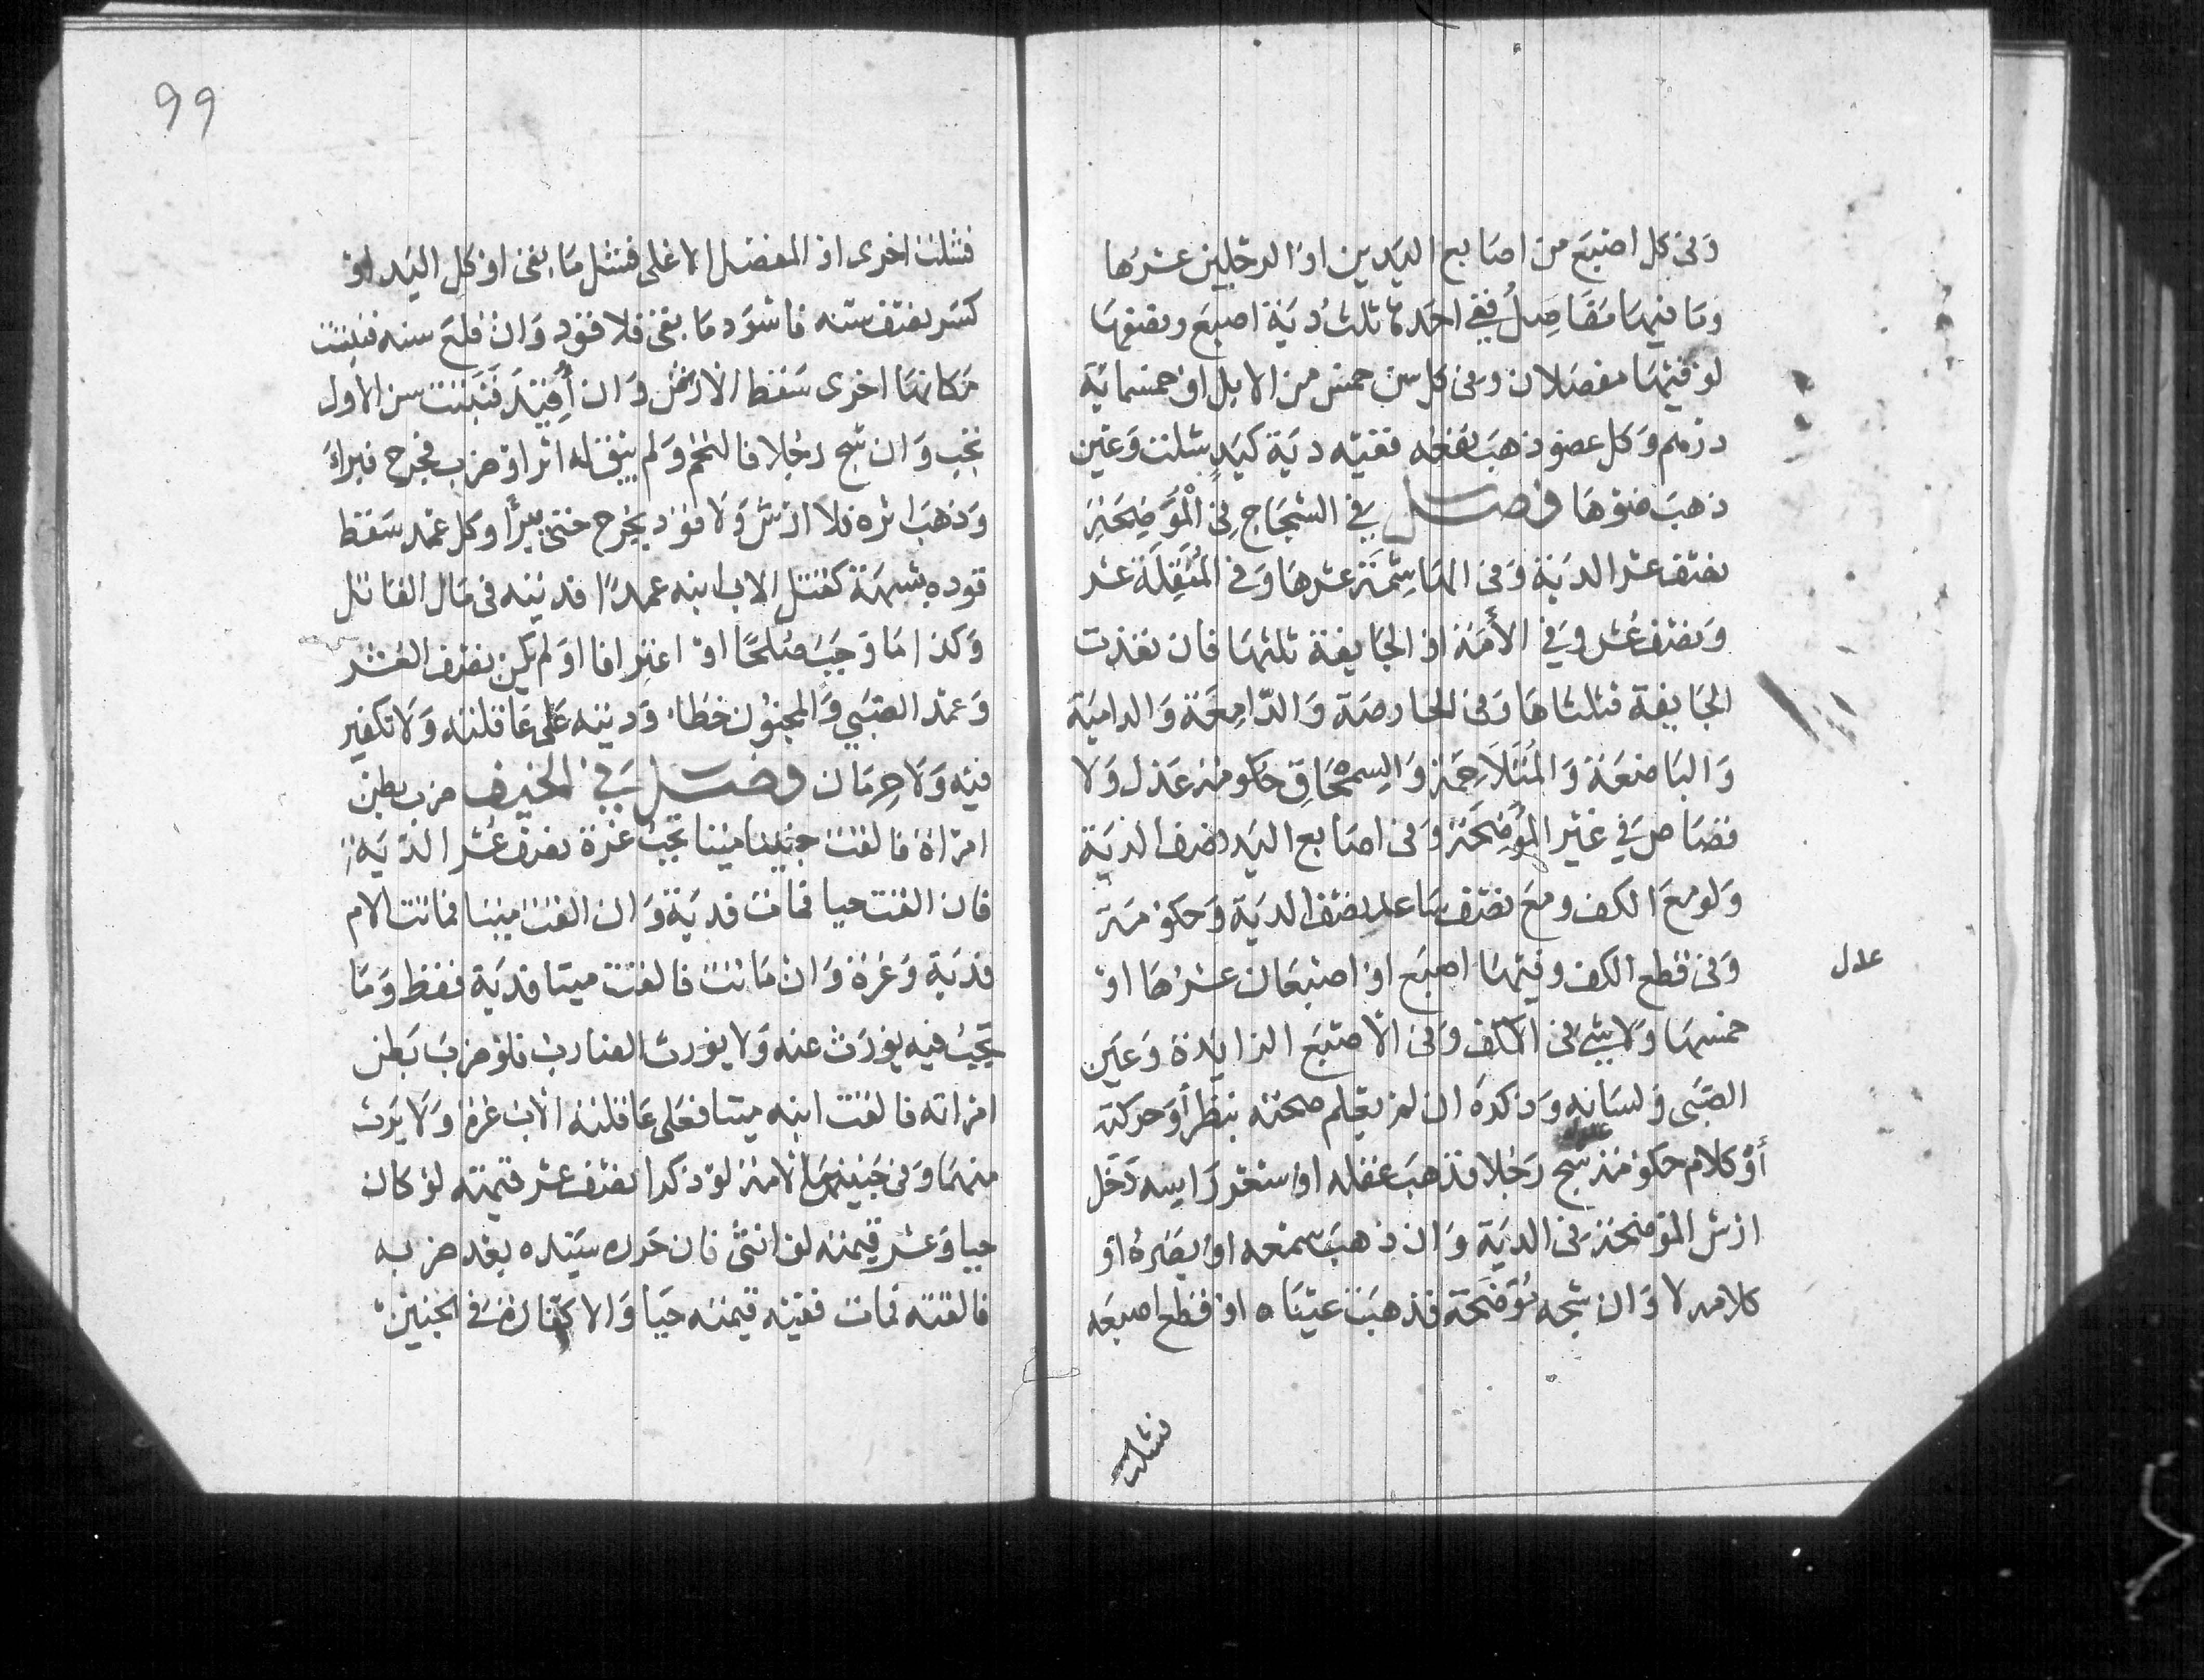 وفي كل اصبع من اصابع اليدين او الرجلين عشرها
وما فيها مفاصل ففي احدها ثلث دية اصبع ونصفها
لو فيها مفصلان وفي كل سن خمس من الابل او خمسماية
درهم وكل عضو ذهب نفعه ففيه دية كيد شلت وعين
ذهب ضوها فصل في الشجاج في الموضحة
نصف عشر الدية وفي الهاشمة عشرها وفي المنقلة عشر
ونصف عشر وفي الأمة او الجايفة ثلثها فان نفذت
الجايفة فثلثاها وفي الحارصة والدّامعة والدامية
والباضعة والمتلاحمة والسمحاق حكومة عدل ولا
قصاص في غير الموضحة وفي اصابع اليد نصف الدية
ولو مع الكف ومع نصف ساعد نصف الدية وحكومة
عدل
وفي قطع الكف وفيها اصبع او اصبعان عشرها او
خمسها ولا شي في الكف وفي الاصبع الزايدة وعين
الصبي ولسانه وذكره ان لم يعلم صحته بنظر أو حركة
أو كلام حكومة شج رجلا فذهب عقله او شعر راسه دخل
ارش الموضحة في الدية وان ذهب سمعه او بصره او
كلامه لا وان شجه موضحة فذهبت عيناه او قطع اصبعه
فشلت
99
فشلت اخرى او المفصل الاعلى فشل ما بقى او كل اليد او
كسر نصف سنه فاسود ما بقى فلا قود وان قلع سنه فنبتت
مكانها اخرى سقط الارش وان أقيد فنبتت سن الأول
تجب وان شج رجلا فالتحم ولم يبق له اثر او ضرب فجرح فبراء
وذهب اثره فلا ارش ولا قود يجرح حتى يبرأ وكل عمد سقط
قوده بشبهة كقتل الاب ابنه عمدا فديته في مال القاتل
وكذا ما وجب صلحا او اعترافا او لم يكن نصف العشر
وعمد الصبي والمجنون خطاء وديته على عاقلته ولا تكفير
فيه ولا حرمان فصل في الجنين ضرب بطن
امراة فالقت جنينا ميتا تجب غرة نصف عشر الدّية
فان القت حيا فمات فدية وان القت ميتا فماتت الام
فدية وغرة وان ماتت فالقت ميتا فدية فقط وما
يجب فيه يورث عنه ولا يورث الضارب فلو ضرب بطن
امراته فالقت ابنه ميتا فعلى عاقلته الاب غرة ولا يرث
منها وفي جنين الامة لو ذكرا نصف عشر قيمته لو كان
حيا وعشر قيمته لو انثى فان حرره سيده بعد ضربه
فالقته فمات ففيه قيمته حيا ولا كفارة في الجنين